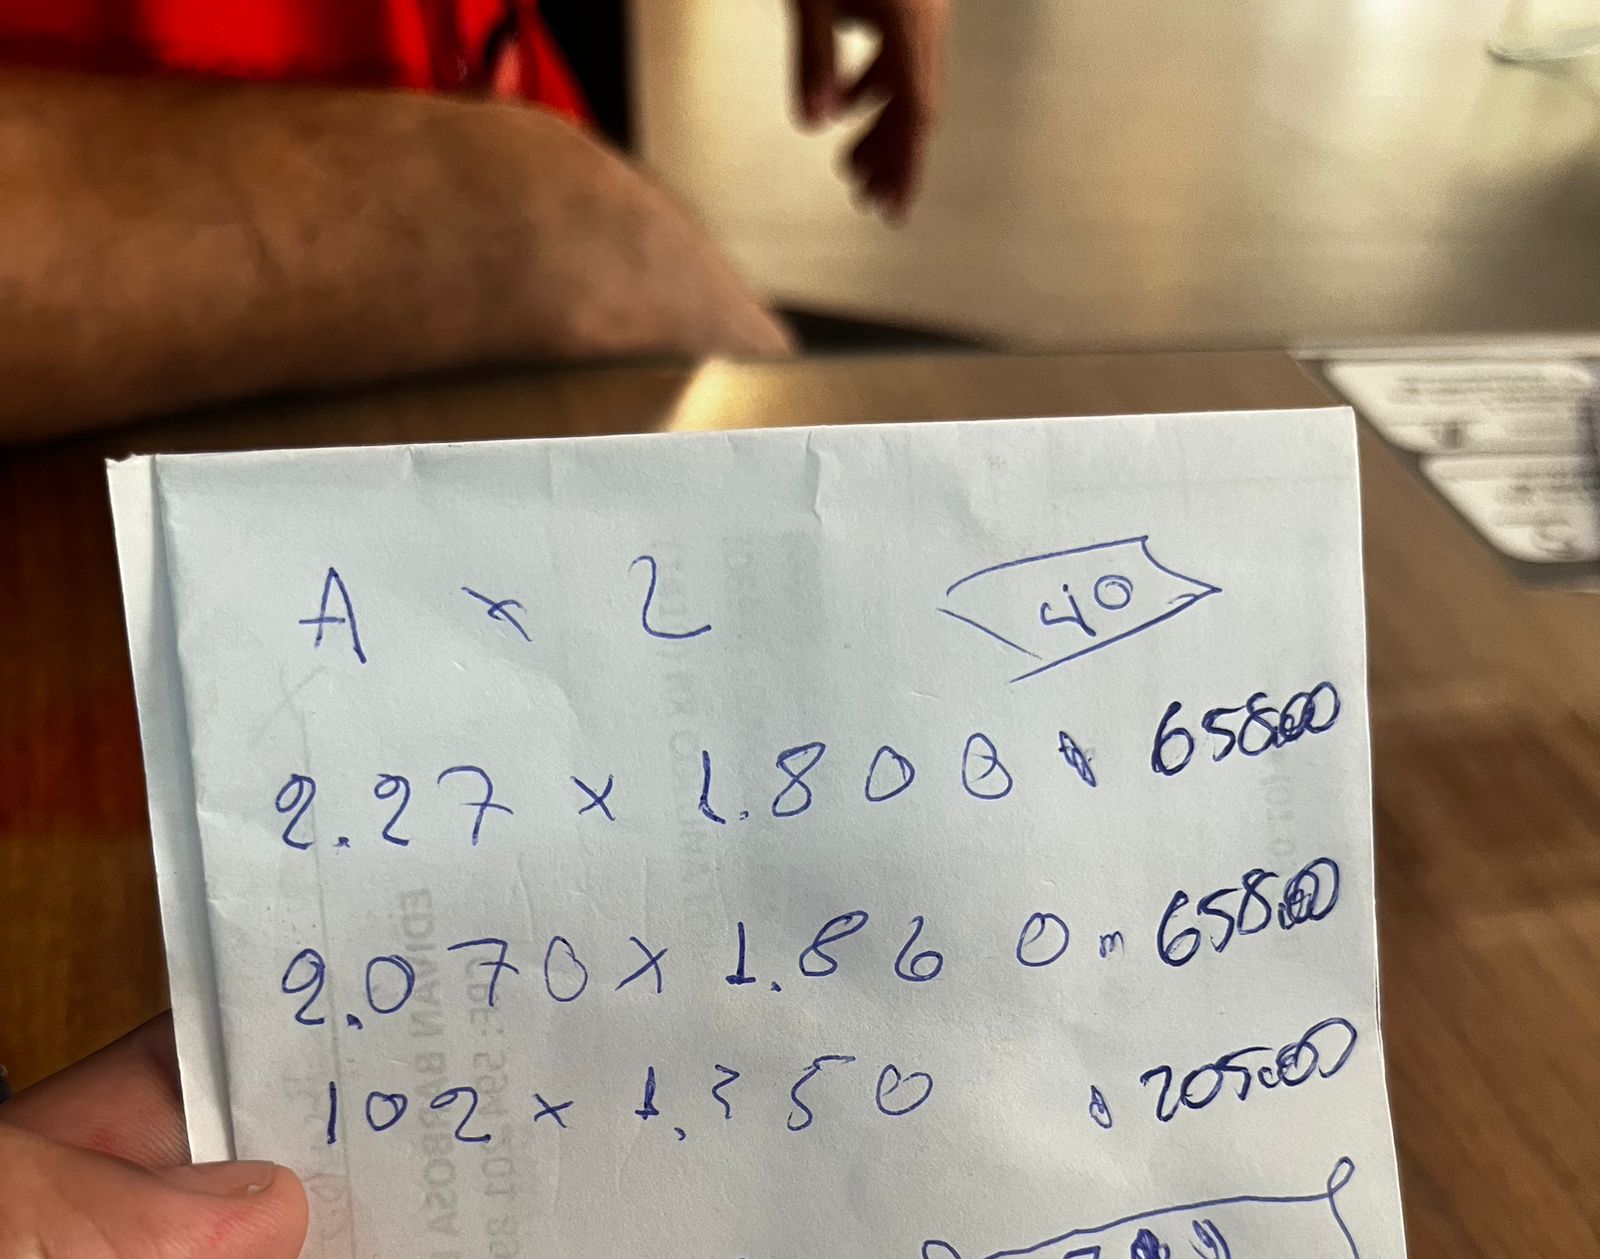 A x 2 40
2.27 x 1.800 65800
2.070 x 1.860 m 65800
102 x 1.250 20500